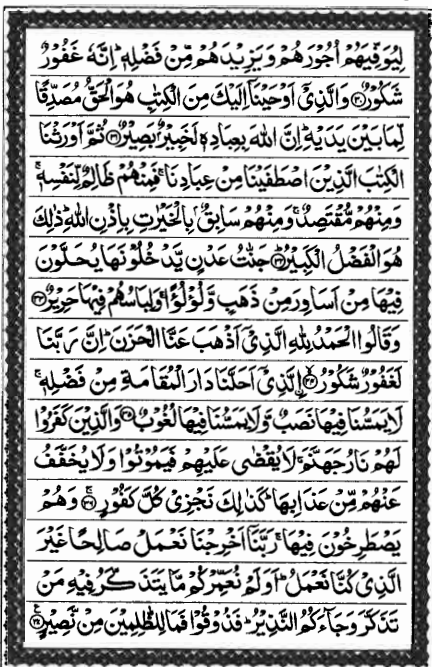 لِيُوَفِّيَهُمْ اُجُوْرَهُمْ وَيَزِيْدَهُمْ مِّنْ فَضْلِهٖ ؕ اِنَّهٗ غَفُوْرٌ
شَكُوْرٌ ﴿۳۰﴾ وَالَّذِيْۤ اَوْحَيْنَاۤ اِلَيْكَ مِنَ الْكِتٰبِ هُوَ الْحَقُّ مُصَدِّقًا
لِّمَا بَيْنَ يَدَيْهِ ؕ اِنَّ اللّٰهَ بِعِبَادِهٖ لَخَبِيْرٌۢ بَصِيْرٌ ﴿۳۱﴾ ثُمَّ اَوْرَثْنَا
الْكِتٰبَ الَّذِيْنَ اصْطَفَيْنَا مِنْ عِبَادِنَا ۚ فَمِنْهُمْ ظَالِمٌ لِّنَفْسِهٖ ۚ
وَمِنْهُمْ مُّقْتَصِدٌ ۚ وَمِنْهُمْ سَابِقٌۢ بِالْخَيْرٰتِ بِاِذْنِ اللّٰهِ ؕ ذٰلِكَ
هُوَ الْفَضْلُ الْكَبِيْرُ ﴿۳۲﴾ جَنّٰتُ عَدْنٍ يَّدْخُلُوْنَهَا يُحَلَّوْنَ
فِيْهَا مِنْ اَسَاوِرَ مِنْ ذَهَبٍ وَّلُؤْلُؤًا ۚ وَلِبَاسُهُمْ فِيْهَا حَرِيْرٌ ﴿۳۳﴾
وَقَالُوا الْحَمْدُ لِلّٰهِ الَّذِيْۤ اَذْهَبَ عَنَّا الْحَزَنَ ؕ اِنَّ رَبَّنَا
لَغَفُوْرٌ شَكُوْرُ ﴿۳۴﴾ اِلَّذِيْۤ اَحَلَّنَا دَارَ الْمُقَامَةِ مِنْ فَضْلِهٖ ۚ
لَا يَمَسُّنَا فِيْهَا نَصَبٌ وَّلَا يَمَسُّنَا فِيْهَا لُغُوْبٌ ﴿۳۵﴾ وَالَّذِيْنَ كَفَرُوْا
لَهُمْ نَارُ جَهَنَّمَ ۚ لَا يُقْضٰى عَلَيْهِمْ فَيَمُوْتُوْا وَلَا يُخَفَّفُ
عَنْهُمْ مِّنْ عَذَابِهَا ؕ كَذٰلِكَ نَجْزِيْ كُلَّ كَفُوْرٍ ﴿۳۶﴾ وَهُمْ
يَصْطَرِخُوْنَ فِيْهَا ۚ رَبَّنَاۤ اَخْرِجْنَا نَعْمَلْ صَالِحًا غَيْرَ
الَّذِيْ كُنَّا نَعْمَلُ ؕ اَوَلَمْ نُعَمِّرْكُمْ مَّا يَتَذَكَّرُ فِيْهِ مَنْ
تَذَكَّرَ وَجَآءَكُمُ النَّذِيْرُ ؕ فَذُوْقُوْا فَمَا لِلظّٰلِمِيْنَ مِنْ نَّصِيْرٍ ﴿۳۷﴾